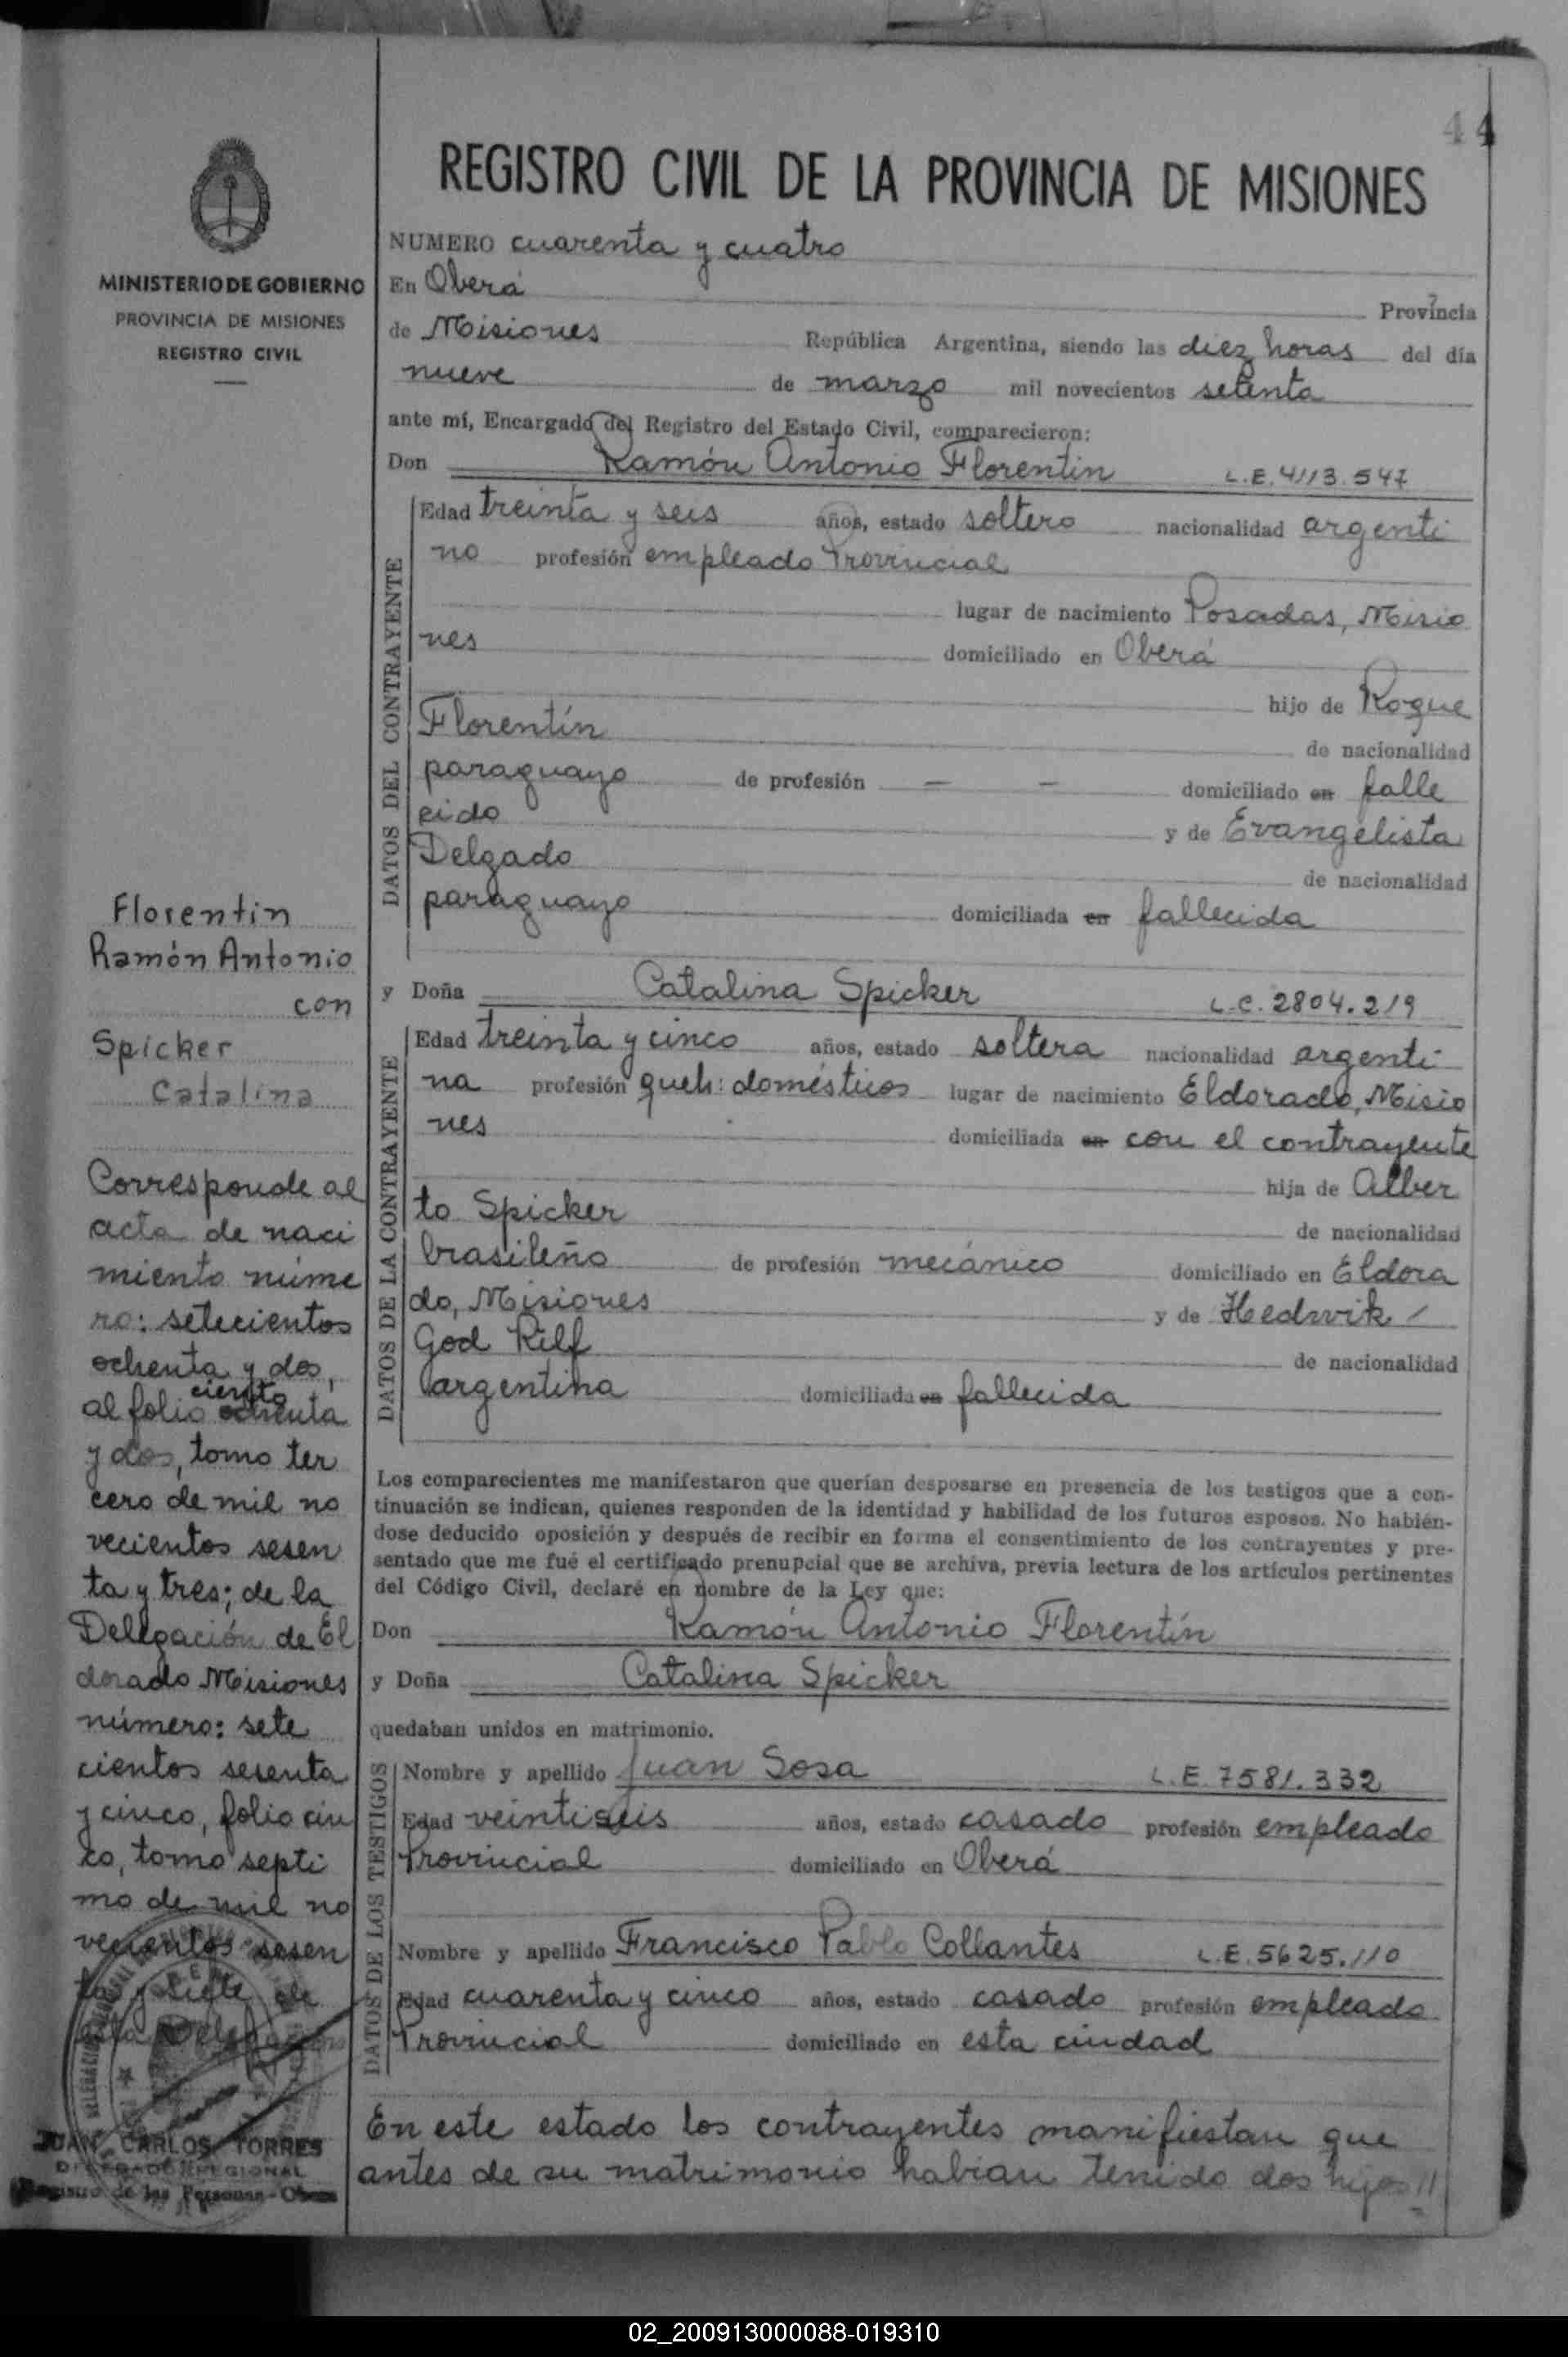 44
MINISTERIO DE GOBIERNO
PROVINCIA DE MISIONES
REGISTRO CIVIL
Florentin
Ramón Antonio
con
Spicker
Catalina
Corresponde al
acta de naci
miento núme
ro: setecientos
ochenta y dos,
ciento
al folio ochenta
y dos, tomo ter
cero de mil no
vecientos sesen
ta y tres; de la
Delegación de El
dorado Misiones
número: sete
cientos sesenta
y cinco, folio cin
co, tomo septi
mo de mil no
vecientos sesen
ta y siete de
esta Delegación
JUAN CARLOS TORRES
DELEGADO REGIONAL
Registro de las Personas - Obera
REGISTRO CIVIL DE LA PROVINCIA DE MISIONES
NUMERO cuarenta y cuatro
En Oberá Provincia
de Misiones República Argentina, siendo las diez horas del día
nueve de marzo mil novecientos setenta
ante mí, Encargado del Registro del Estado Civil, comparecieron:
Don Ramón Antonio Florentin L.E. 4113.547
DATOS DEL CONTRAYENTE
Edad treinta y seis años, estado soltero nacionalidad argenti
no profesión empleado Provincial
lugar de nacimiento Posadas, Misio
nes domiciliado en Oberá
hijo de Roque
Florentín de nacionalidad
paraguayo de profesión — — domiciliado en falle
cido y de Evangelista
Delgado de nacionalidad
paraguayo domiciliada en fallecida
y Doña Catalina Spicker L.C. 2804.219
DATOS DE LA CONTRAYENTE
Edad treinta y cinco años, estado soltera nacionalidad argenti
na profesión queh: domésticos lugar de nacimiento Eldorado, Misio
nes domiciliada en con el contrayente
hija de Alber
to Spicker de nacionalidad
brasileño de profesión mecánico domiciliado en Eldora
do, Misiones y de Hedwik
God Rilf de nacionalidad
argentina domiciliada en fallecida
Los comparecientes me manifestaron que querían desposarse en presencia de los testigos que a con-
tinuación se indican, quienes responden de la identidad y habilidad de los futuros esposos. No habién-
dose deducido oposición y después de recibir en forma el consentimiento de los contrayentes y pre-
sentado que me fué el certificado prenupcial que se archiva, previa lectura de los artículos pertinentes
del Código Civil, declaré en nombre de la Ley que:
Don Ramón Antonio Florentín
y Doña Catalina Spicker
quedaban unidos en matrimonio.
DATOS DE LOS TESTIGOS
Nombre y apellido Juan Sosa L.E. 7581.332
Edad veintiseis años, estado casado profesión empleado
Provincial domiciliado en Oberá
Nombre y apellido Francisco Pablo Collantes L.E. 5625.110
Edad cuarenta y cinco años, estado casado profesión empleado
Provincial domiciliado en esta ciudad
En este estado los contrayentes manifiestan que
antes de su matrimonio habian tenido dos hijos //
02_200913000088-019310